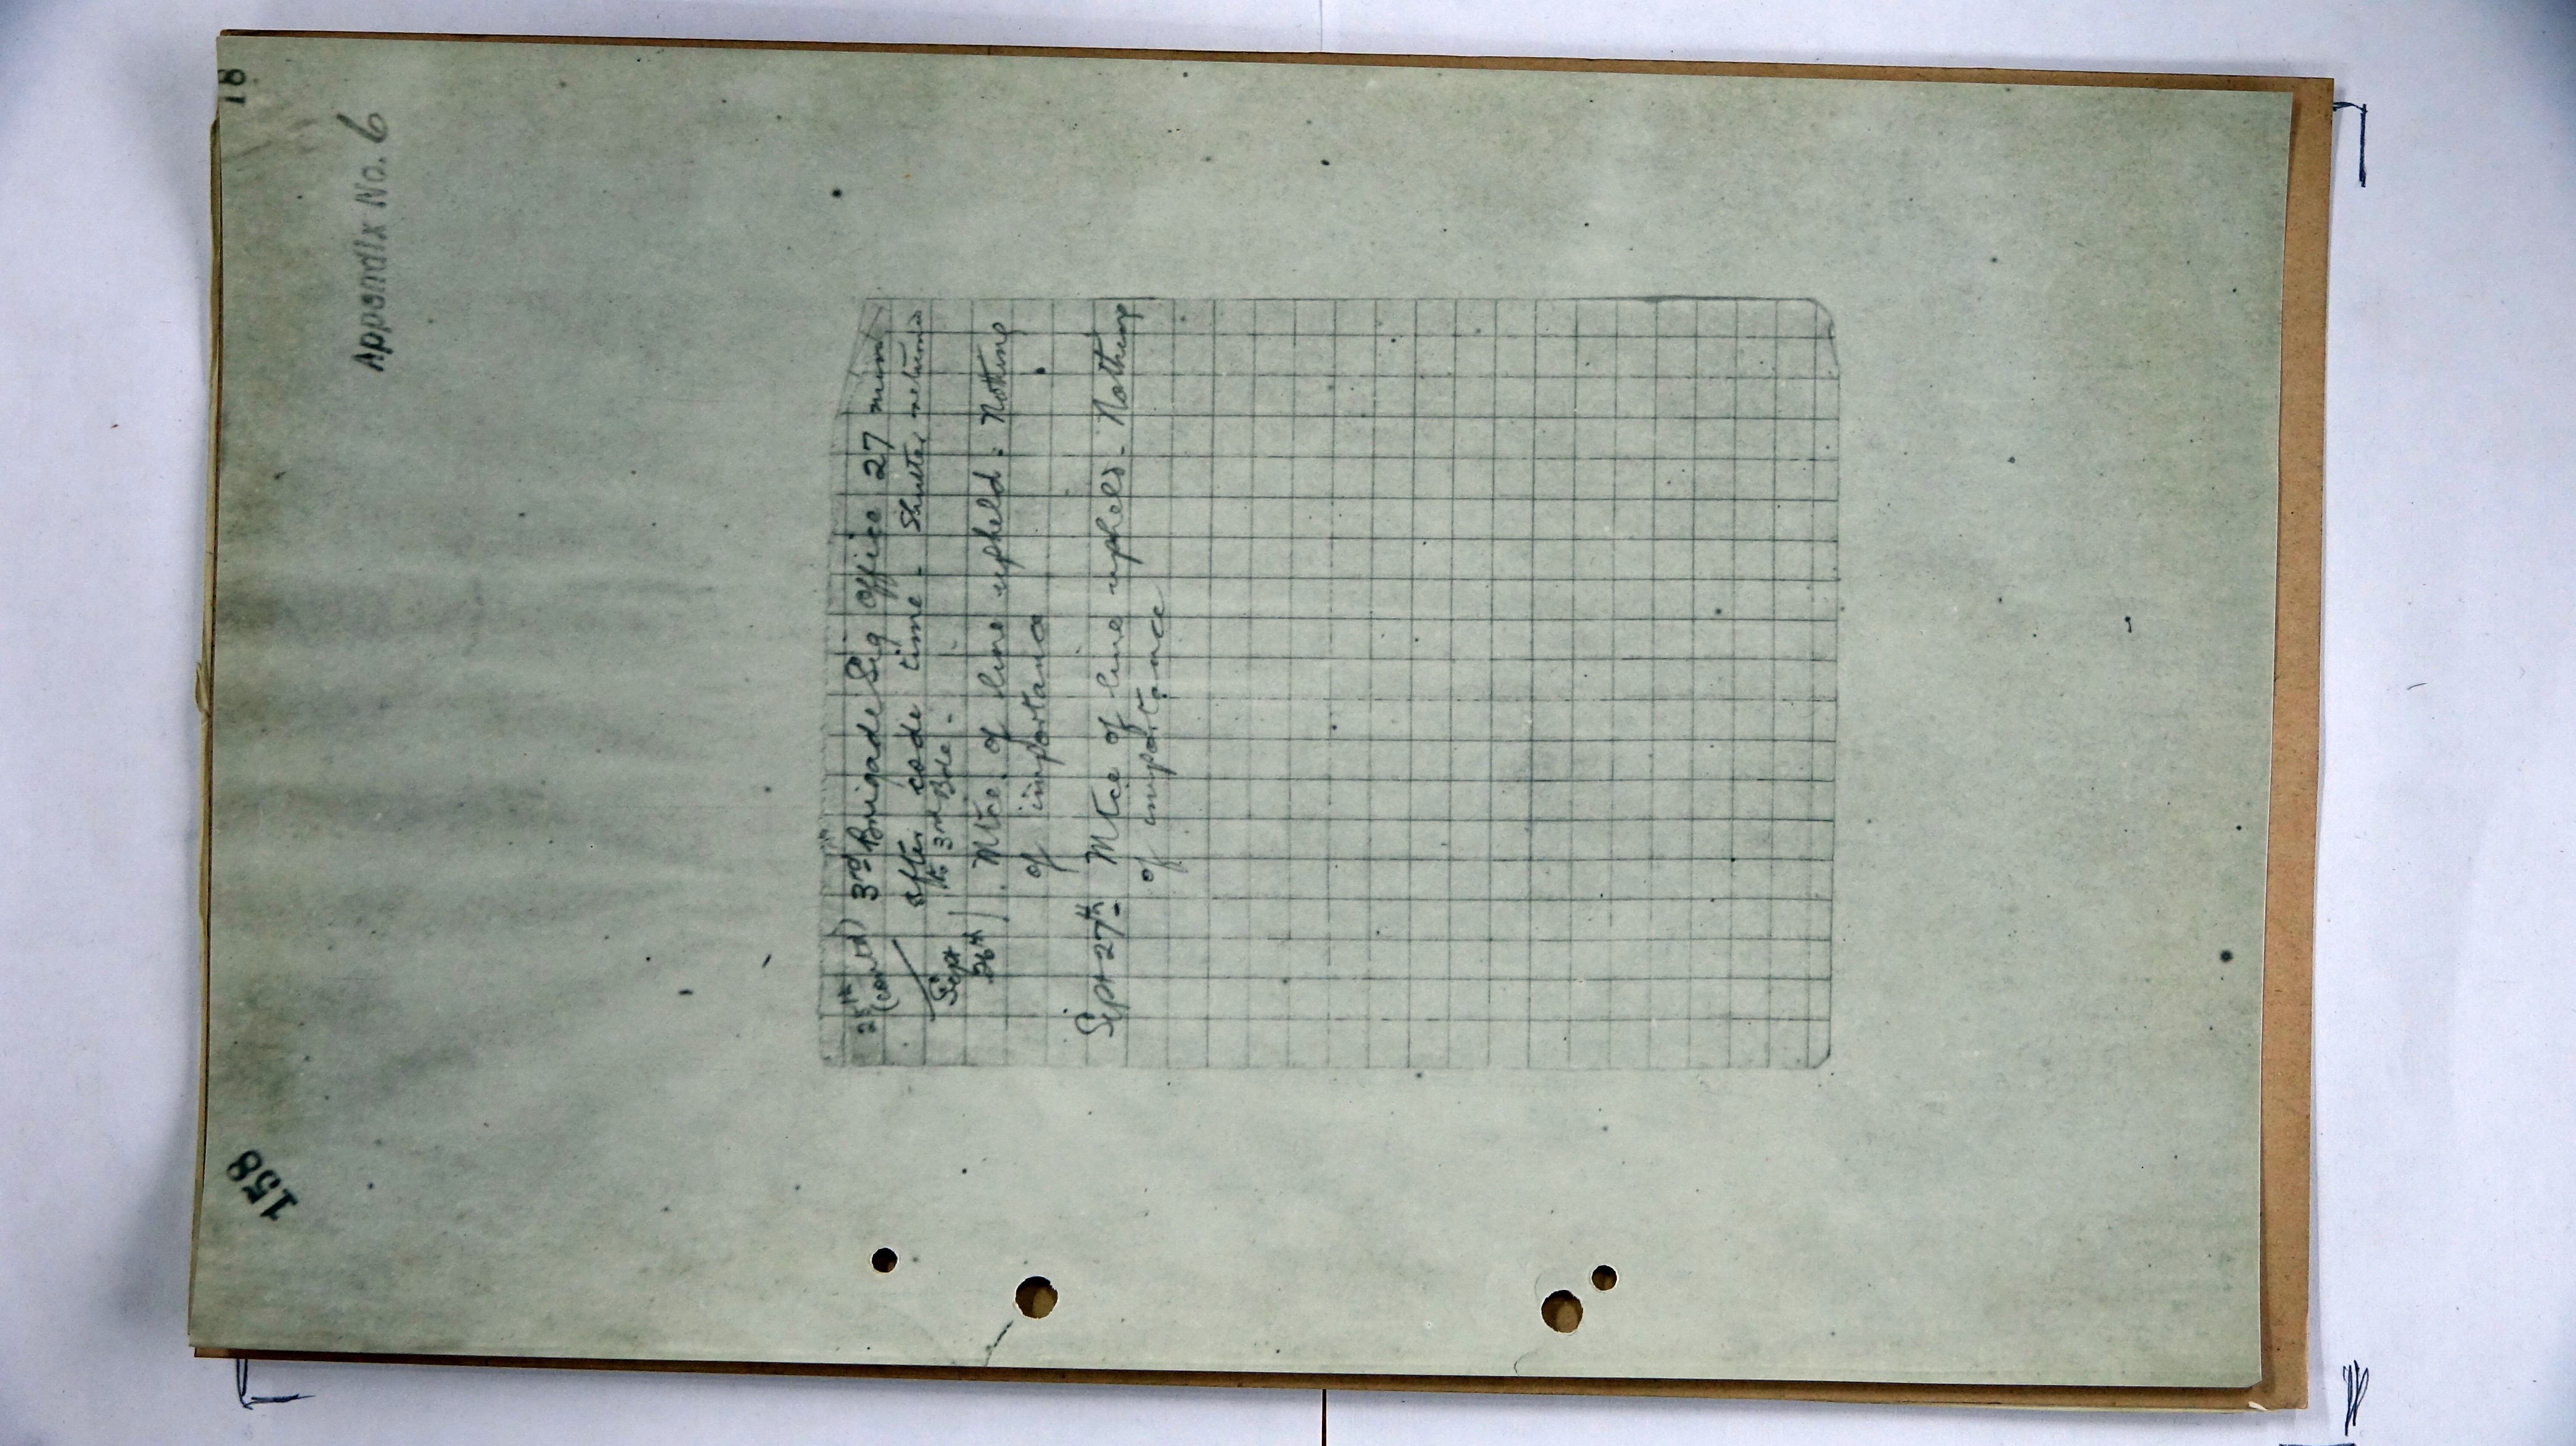 18
Appendix No. 6
158
25th (contd) 3rd Brigade Sig Office 27 mins
after code time - Shutes returns
to 3rd Bde -
Sept 26th Mtce of line upheld - Nothing
of importance
Sept 27th - Mtce of line upheld - Nothing
of importance